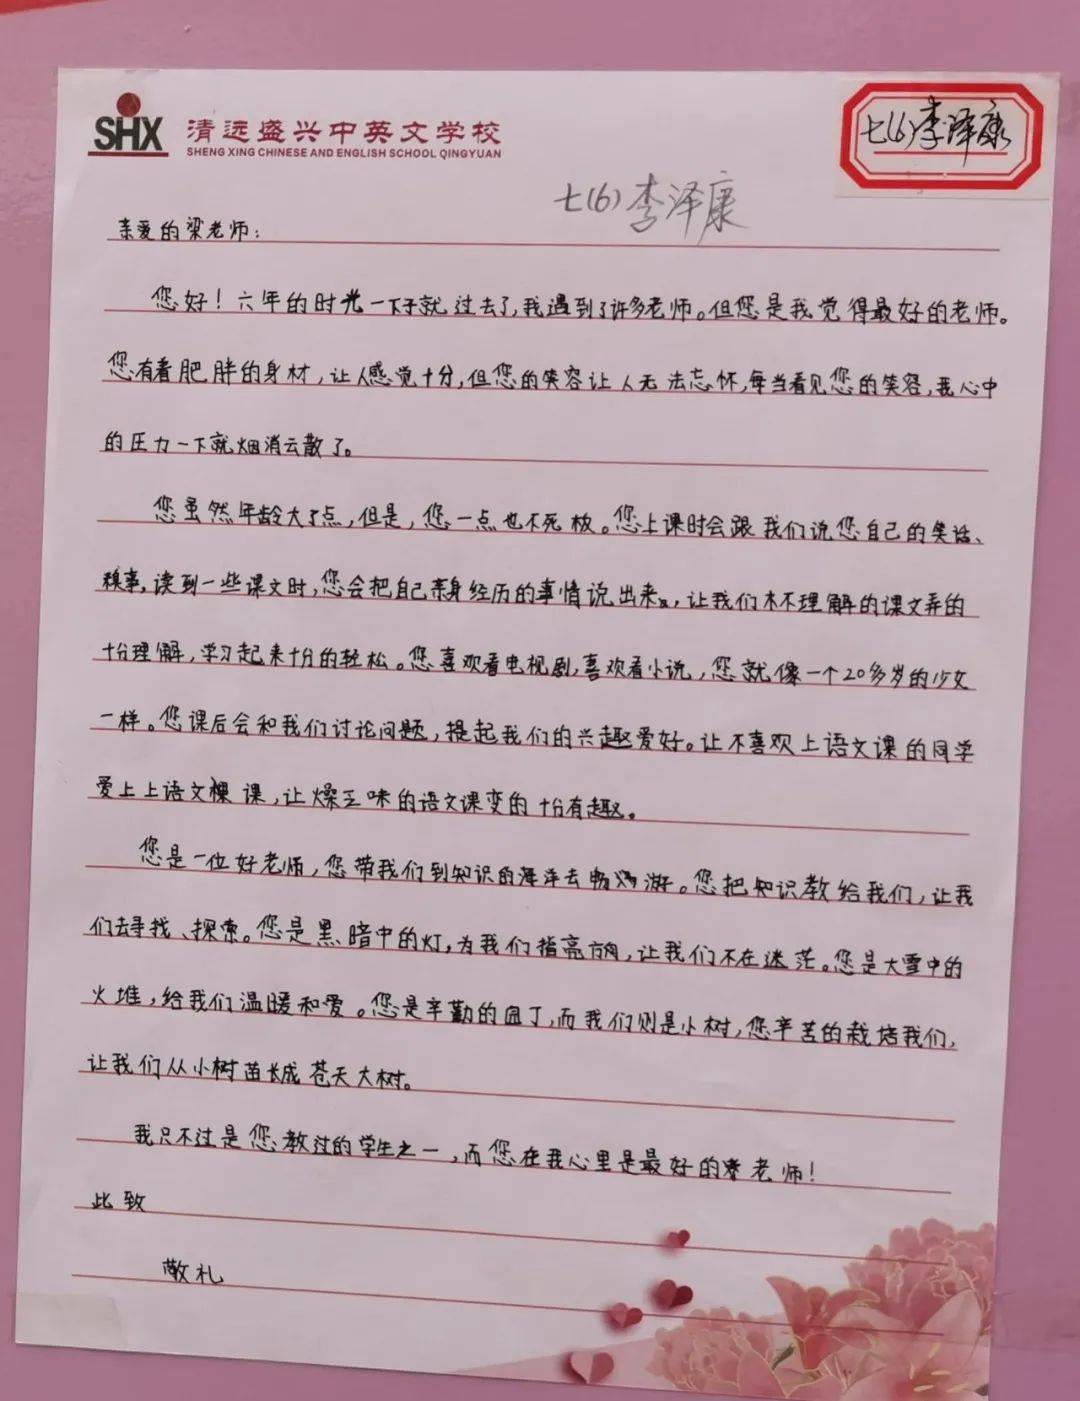 SHX 清远盛兴中英文学校
SHENG XING CHINESE AND ENGLISH SCHOOL QINGYUAN
七(6)李泽康
七(6)李泽康
亲爱的梁老师:
您好!六年的时光一下子就过去了,我遇到了许多老师。但您是我觉得最好的老师。
您有着肥胖的身材,让人感觉十分,但您的笑容让人无法忘怀,每当看见您的笑容,我心中
的压力一下就烟消云散了。
您虽然年龄大了点,但是,您一点也不死板。您上课时会跟我们说您自己的笑话、
糗事,读到一些课文时,您会把自己亲身经历的事情说出来,让我们本不理解的课文弄的
十分理解,学习起来十分的轻松。您喜欢看电视剧,喜欢看小说,您就像一个20多岁的少女
一样。您课后会和我们讨论问题,提起我们的兴趣爱好。让不喜欢上语文课的同学
爱上上语文课,让燥乏味的语文课变的十分有趣。
您是一位好老师,您带我们到知识的海洋去畅游。您把知识教给我们,让我
们去寻找、探索。您是黑暗中的灯,为我们指亮方向,让我们不在迷茫。您是大雪中的
火堆,给我们温暖和爱。您是辛勤的园丁,而我们则是小树,您辛苦的栽培我们,
让我们从小树苗长成苍天大树。
我只不过是您教过的学生之一,而您在我心里是最好的老师!
此致
敬礼